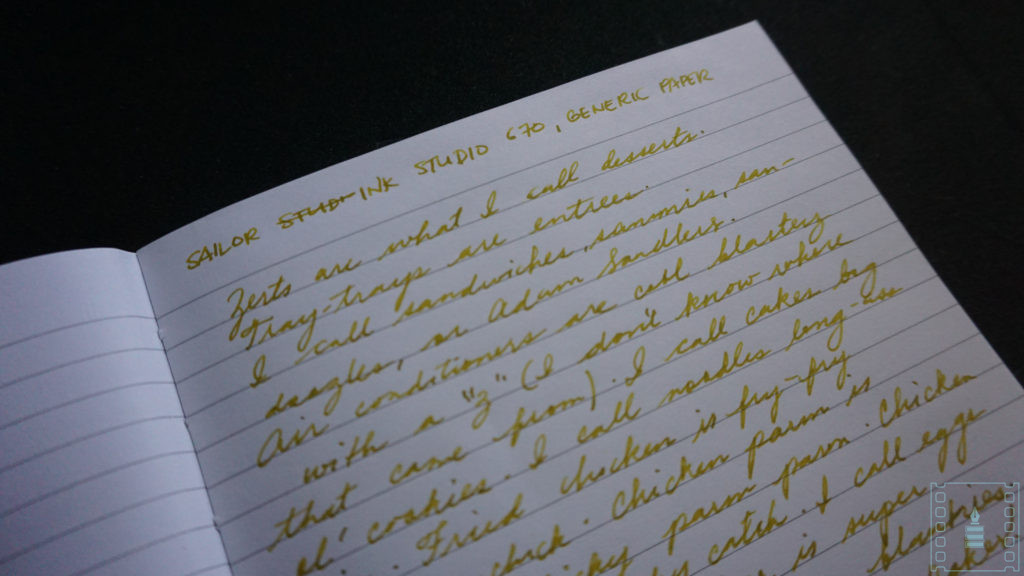 SAILOR STUDI INK STUDIO 670, GENERIC PAPER
Zerts are what I call desserts.
Tray-trays are entrees.
I call sandwiches, sammies, san-
doozles, or Adam Sandlers.
Air conditioners are cool blasterz
with a "z" (I don't know where
that came from). I call cakes big
ol' cookies. I call noodles long-ass
Fried chicken is fry-fry
chick. Chicken parm is
parm parm. Chicken
catch. I call eggs
is super